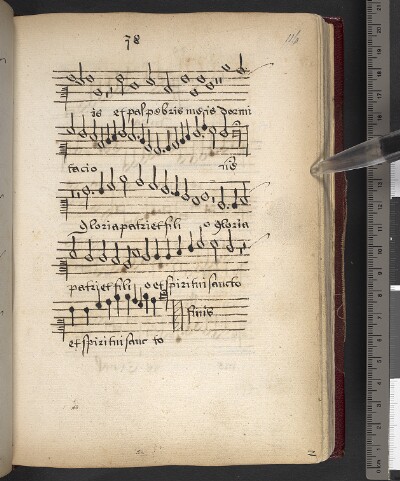 78
is et palpebris meis dormi
tacio nis
Gloria patri et fili o Gloria
patri et fili o et spiritui sancto
finis
et spiritui sanc to